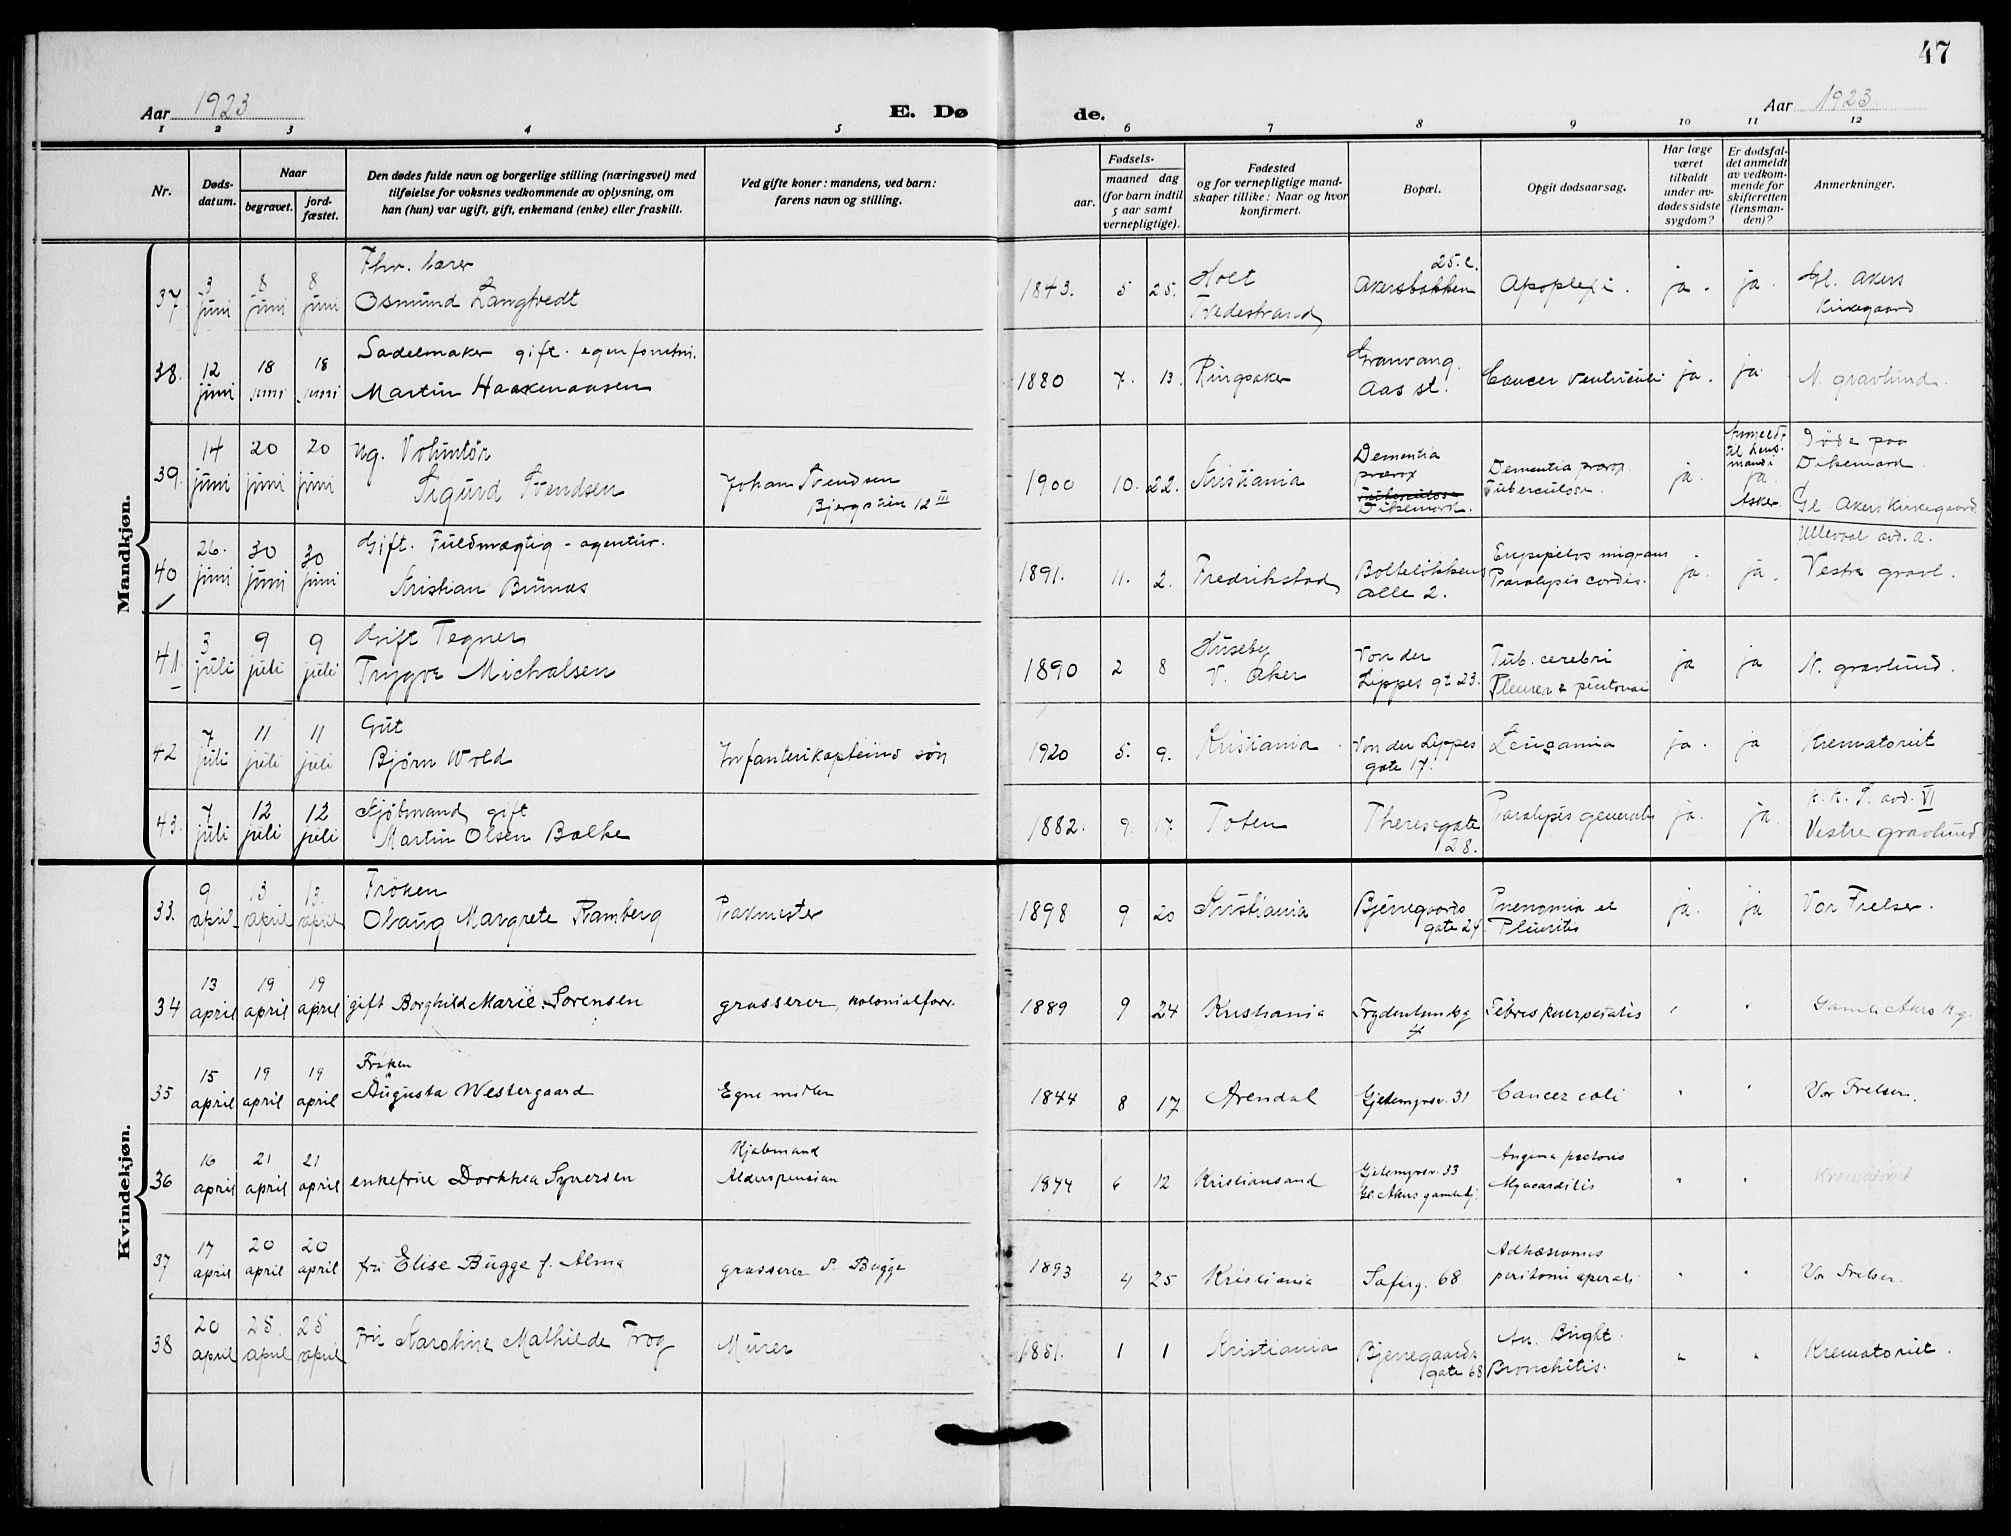 47
Aar 1923 E. Dø de. Aar 1923
1 2 3 4 5 6 7 8 9 10 11 12
Nr.
Døds-
datum.
Naar
begravet.
jord-
fæstet.
Den dødes fulde navn og borgerlige stilling (næringsvei) med
tilføielse for voksnes vedkommende av oplysning, om
han (hun) var ugift, gift, enkemand (enke) eller fraskilt.
Ved gifte koner: mandens, ved barn:
farens navn og stilling.
Fødsels-
aar.
maaned dag
(for barn indtil
5 aar samt
vernepligtige).
Fødested
og for vernepligtige mand-
skaper tillike: Naar og hvor
konfirmert.
Bopæl.
Opgit dødsaarsag.
Har læge
været
tilkaldt
under av-
dødes sidste
sygdom?
Er dødsfal-
det anmeldt
av vedkom-
mende for
skifteretten
(lensman-
den)?
Anmerkninger.
Mandkjøn.
37. 3 juni 8 juni 8 juni
Fhv. lærer
Osmund Langtvedt
1843. 5 25.
Holt
Tvedestrand
25. c.
Akersbakken
Apoplexi. ja. ja.
Gl. Akers
Kirkegaard
38. 12 juni 18 juni 18 juni
Sadelmaker gift. egen forretn.
Martin Haakenaasen
1880 7. 13. Ringsaker
Granvang.
Aas st.
Cancer ventriculi ja. ja N. gravlund.
39. 14 juni 20 juni 20 juni
Ug. Volontør
Sigurd Svendsen
Johan Svendsen
Bjergstien 12 III
1900 10. 22. Kristiania
Dementia
præcox
Tuberculose
Dikemark.
Dementia præcox
Tuberculose.
ja.
Anmeldt
til lens-
mand i
ja.
Asker.
Døde paa
Dikemark.
Gl. Akers Kirkegaard.
40 26. juni 30 juni 30 juni
Gift. Fuldmægtig - agentur.
Kristian Brunæs
1891. 11. 2. Fredrikstad
Bolteløkkens
alle 2.
Erysipelas migrans
Paralysis cordis.
ja. ja.
Ullevaal avd. A.
Vestre gravl.
41 3 juli 9 juli 9 juli
Gift Tegner
Trygve Michalsen
1890 2 8
Huseby
V. Aker
Von der
Lippes gt 23.
Tub. cerebri
Pleurea & peritonai
ja ja N. gravlund.
42 7 juli 11 juli 11 juli
Gut
Bjørn Wold
Infanterikapteins søn
1920 5. 9. Kristiania
Von der Lippes
gate 17.
Leucæmia ja. ja Krematoriet
43. 7 juli 12 juli 12 juli
Kjøbmand gift
Martin Olsen Balke
1882. 9. 17. Toten
Theresegate
28.
Paralysis generalis ja. ja.
K. K. S. avd. VI
Vestre gravlund
Kvindekjøn.
33. 9 april 13 april 13. april
Frøken
Olaug Margrete Ramberg
Pakmester
1898 9 20 Kristiania
Bjerregaards
gate 24
Pnenomia et
Pleuritis
ja. ja Vor Frelser.
34 13 april 19 april 19 april
gift Borghild Marie Sørensen
grosserer, kolonialforr.
1889 9 24 Kristiania
Frydenlundsg
Febris puerperalis " "
Gamle Akers Kg.
35 15 april 19 april 19 april
Frøken
Augusta Westergaard
Egne midler
1844 8 17 Arendal Gjetemyrsv. 31 Cancer coli " " Vor Frelser.
36 16 april 21 april 21 april
enkefrue Dorthea Syversen
Kjøbmand
Alderspension
1844 6 12 Kristiansand
Gjetemyrsv. 33
Gl. Akers gamlehj.
Angina pectoris
Myocarditis
" " Krematoriet
37 17 april 20 april 20 april
fru Elise Bugge f. Alma
grosserer S. Bugge
1893 4 25 Kristiania Sofieg. 68
Adhæsiones
peritoni operati
" " Vor Frelser.
38 20 april 25. april 25 april
Fru Karoline Mathilde Trog
Murer
1851. 1 1 Kristiania
Bjerregaards
gate 68
An. Bright.
Bronchitis.
" " Krematoriet.